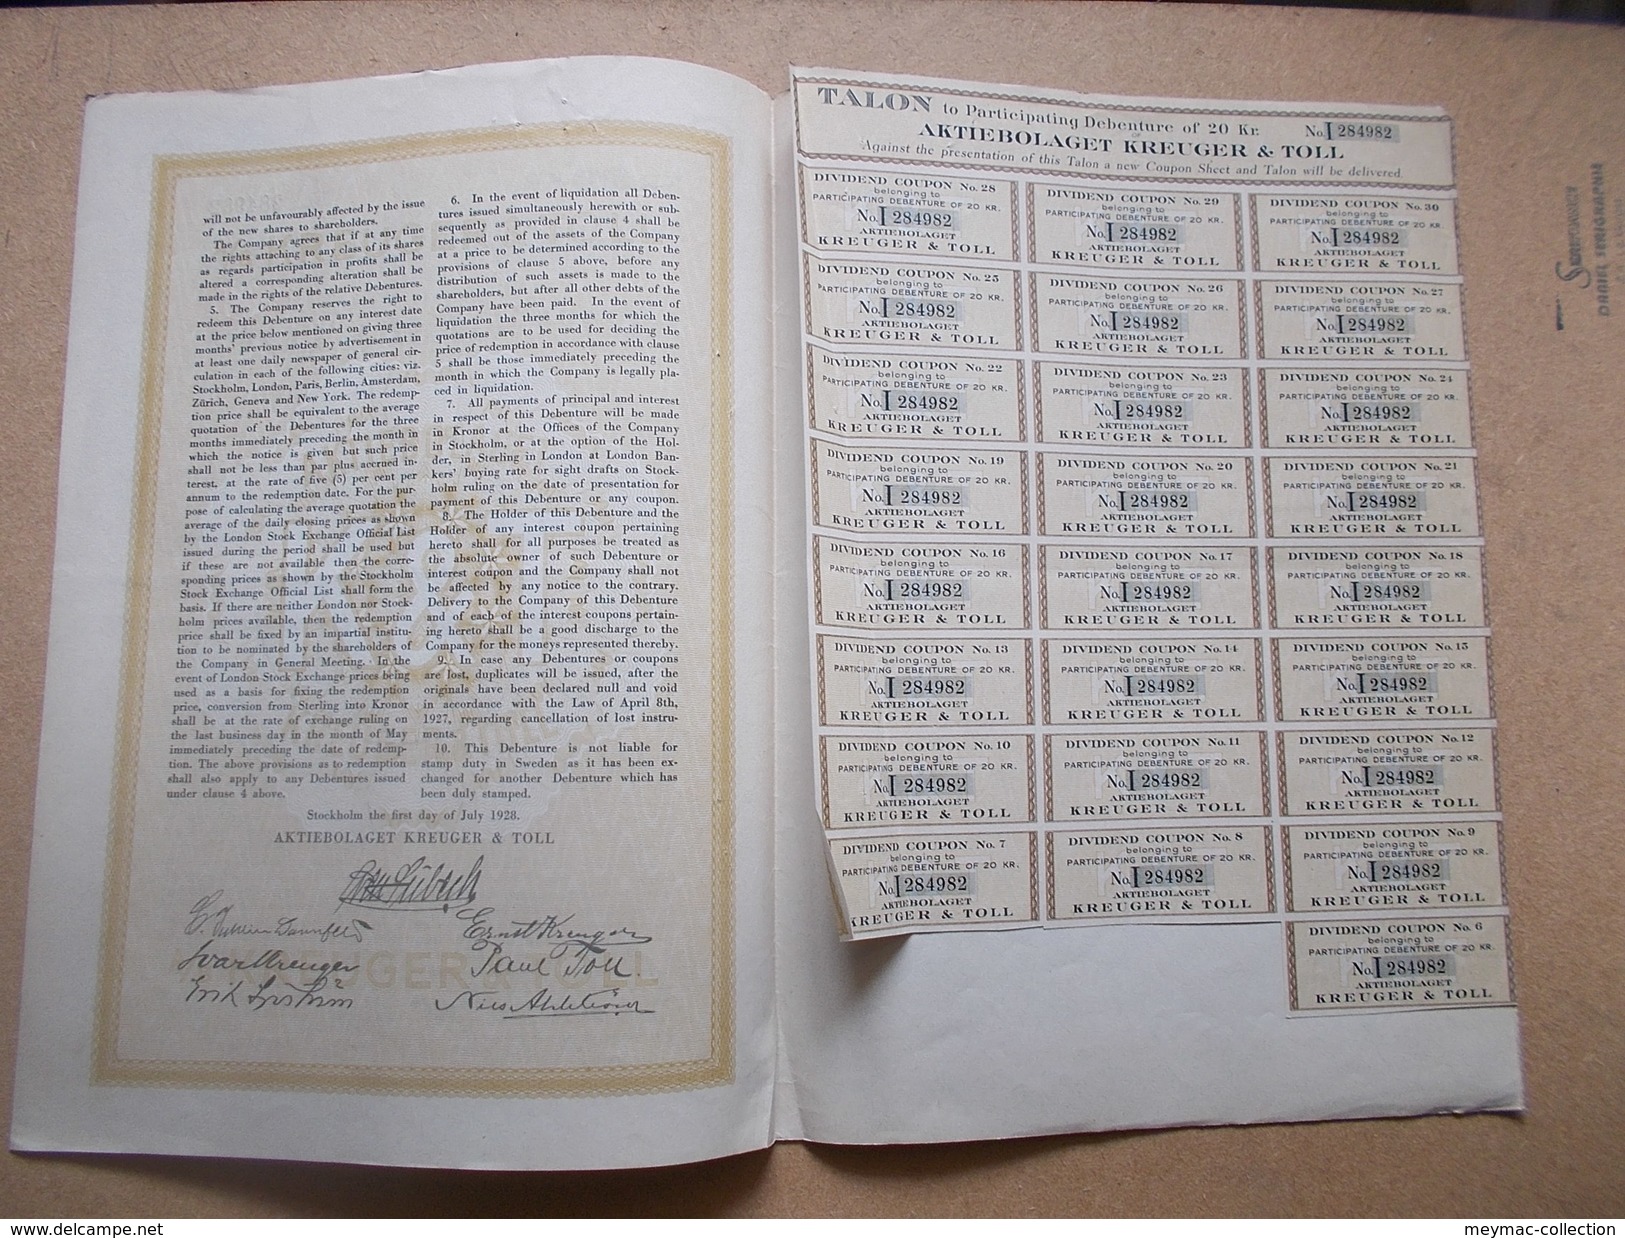 will not be unfavourably affected by the issue
of the new shares to shareholders.
The Company agrees that if at any time
the rights attaching to any class of its shares
as regards participation in profits shall be
altered a corresponding alteration shall be
made in the rights of the relative Debentures.
5. The Company reserves the right to
redeem this Debenture on any interest date
at the price below mentioned on giving three
months' previous notice by advertisement in
at least one daily newspaper of general cir-
culation in each of the following cities: viz.
Stockholm, London, Paris, Berlin, Amsterdam,
Zürich, Geneva and New York. The redemp-
tion price shall be equivalent to the average
quotation of the Debentures for the three
months immediately preceding the month in
which the notice is given but such price
shall not be less than par plus accrued in-
terest, at the rate of five (5) per cent per
annum to the redemption date. For the pur-
pose of calculating the average quotation the
average of the daily closing prices as shown
by the London Stock Exchange Official List
issued during the period shall be used but
if these are not available then the corre-
sponding prices as shown by the Stockholm
Stock Exchange Official List shall form the
basis. If there are neither London nor Stock-
holm prices available, then the redemption
price shall be fixed by an impartial institu-
tion to be nominated by the shareholders of
the Company in General Meeting. In the
event of London Stock Exchange prices being
used as a basis for fixing the redemption
price, conversion from Sterling into Kronor
shall be at the rate of exchange ruling on
the last business day in the month of May
immediately preceding the date of redemp-
tion. The above provisions as to redemption
shall also apply to any Debentures issued
under clause 4 above.
6. In the event of liquidation all Deben-
tures issued simultaneously herewith or sub-
sequently as provided in clause 4 shall be
redeemed out of the assets of the Company
at a price to be determined according to the
provisions of clause 5 above, before any
distribution of such assets is made to the
shareholders, but after all other debts of the
Company have been paid. In the event of
liquidation the three months for which the
quotations are to be used for deciding the
price of redemption in accordance with clause
5 shall be those immediately preceding the
month in which the Company is legally pla-
ced in liquidation.
7. All payments of principal and interest
in respect of this Debenture will be made
in Kronor at the Offices of the Company
in Stockholm, or at the option of the Hol-
der, in Sterling in London at London Ban-
kers' buying rate for sight drafts on Stock-
holm ruling on the date of presentation for
payment of this Debenture or any coupon.
8. The Holder of this Debenture and the
Holder of any interest coupon pertaining
hereto shall for all purposes be treated as
the absolute owner of such Debenture or
interest coupon and the Company shall not
be affected by any notice to the contrary.
Delivery to the Company of this Debenture
and of each of the interest coupons pertain-
ing hereto shall be a good discharge to the
Company for the moneys represented thereby.
9. In case any Debentures or coupons
are lost, duplicates will be issued, after the
originals have been declared null and void
in accordance with the Law of April 8th,
1927, regarding cancellation of lost instru-
ments.
10. This Debenture is not liable for
stamp duty in Sweden as it has been ex-
changed for another Debenture which has
been duly stamped.
Stockholm the first day of July 1928.
AKTIEBOLAGET KREUGER & TOLL
Ernst Kreuger
Ivar Kreuger
Paul Toll.
TALON to Participating Debenture of 20 Kr. No. I 284982
AKTIEBOLAGET KREUGER & TOLL
Against the presentation of this Talon a new Coupon Sheet and Talon will be delivered.
DIVIDEND COUPON No. 28
belonging to
PARTICIPATING DEBENTURE OF 20 KR.
No. I 284982
AKTIEBOLAGET
KREUGER & TOLL
DIVIDEND COUPON No. 29
belonging to
PARTICIPATING DEBENTURE OF 20 KR.
No. I 284982
AKTIEBOLAGET
KREUGER & TOLL
DIVIDEND COUPON No. 30
belonging to
PARTICIPATING DEBENTURE OF 20 KR.
No. I 284982
AKTIEBOLAGET
KREUGER & TOLL
DIVIDEND COUPON No. 25
belonging to
PARTICIPATING DEBENTURE OF 20 KR.
No. I 284982
AKTIEBOLAGET
KREUGER & TOLL
DIVIDEND COUPON No. 26
belonging to
PARTICIPATING DEBENTURE OF 20 KR.
No. I 284982
AKTIEBOLAGET
KREUGER & TOLL
DIVIDEND COUPON No. 27
belonging to
PARTICIPATING DEBENTURE OF 20 KR.
No. I 284982
AKTIEBOLAGET
KREUGER & TOLL
DIVIDEND COUPON No. 22
belonging to
PARTICIPATING DEBENTURE OF 20 KR.
No. I 284982
AKTIEBOLAGET
KREUGER & TOLL
DIVIDEND COUPON No. 23
belonging to
PARTICIPATING DEBENTURE OF 20 KR.
No. I 284982
AKTIEBOLAGET
KREUGER & TOLL
DIVIDEND COUPON No. 24
belonging to
PARTICIPATING DEBENTURE OF 20 KR.
No. I 284982
AKTIEBOLAGET
KREUGER & TOLL
DIVIDEND COUPON No. 19
belonging to
PARTICIPATING DEBENTURE OF 20 KR.
No. I 284982
AKTIEBOLAGET
KREUGER & TOLL
DIVIDEND COUPON No. 20
belonging to
PARTICIPATING DEBENTURE OF 20 KR.
No. I 284982
AKTIEBOLAGET
KREUGER & TOLL
DIVIDEND COUPON No. 21
belonging to
PARTICIPATING DEBENTURE OF 20 KR.
No. I 284982
AKTIEBOLAGET
KREUGER & TOLL
DIVIDEND COUPON No. 16
belonging to
PARTICIPATING DEBENTURE OF 20 KR.
No. I 284982
AKTIEBOLAGET
KREUGER & TOLL
DIVIDEND COUPON No. 17
belonging to
PARTICIPATING DEBENTURE OF 20 KR.
No. I 284982
AKTIEBOLAGET
KREUGER & TOLL
DIVIDEND COUPON No. 18
belonging to
PARTICIPATING DEBENTURE OF 20 KR.
No. I 284982
AKTIEBOLAGET
KREUGER & TOLL
DIVIDEND COUPON No. 13
belonging to
PARTICIPATING DEBENTURE OF 20 KR.
No. I 284982
AKTIEBOLAGET
KREUGER & TOLL
DIVIDEND COUPON No. 14
belonging to
PARTICIPATING DEBENTURE OF 20 KR.
No. I 284982
AKTIEBOLAGET
KREUGER & TOLL
DIVIDEND COUPON No. 15
belonging to
PARTICIPATING DEBENTURE OF 20 KR.
No. I 284982
AKTIEBOLAGET
KREUGER & TOLL
DIVIDEND COUPON No. 10
belonging to
PARTICIPATING DEBENTURE OF 20 KR.
No. I 284982
AKTIEBOLAGET
KREUGER & TOLL
DIVIDEND COUPON No. 11
belonging to
PARTICIPATING DEBENTURE OF 20 KR.
No. I 284982
AKTIEBOLAGET
KREUGER & TOLL
DIVIDEND COUPON No. 12
belonging to
PARTICIPATING DEBENTURE OF 20 KR.
No. I 284982
AKTIEBOLAGET
KREUGER & TOLL
DIVIDEND COUPON No. 7
belonging to
PARTICIPATING DEBENTURE OF 20 KR.
No. I 284982
AKTIEBOLAGET
KREUGER & TOLL
DIVIDEND COUPON No. 8
belonging to
PARTICIPATING DEBENTURE OF 20 KR.
No. I 284982
AKTIEBOLAGET
KREUGER & TOLL
DIVIDEND COUPON No. 9
belonging to
PARTICIPATING DEBENTURE OF 20 KR.
No. I 284982
AKTIEBOLAGET
KREUGER & TOLL
DIVIDEND COUPON No. 6
belonging to
PARTICIPATING DEBENTURE OF 20 KR.
No. I 284982
AKTIEBOLAGET
KREUGER & TOLL
www.delcampe.net
meymac-collection